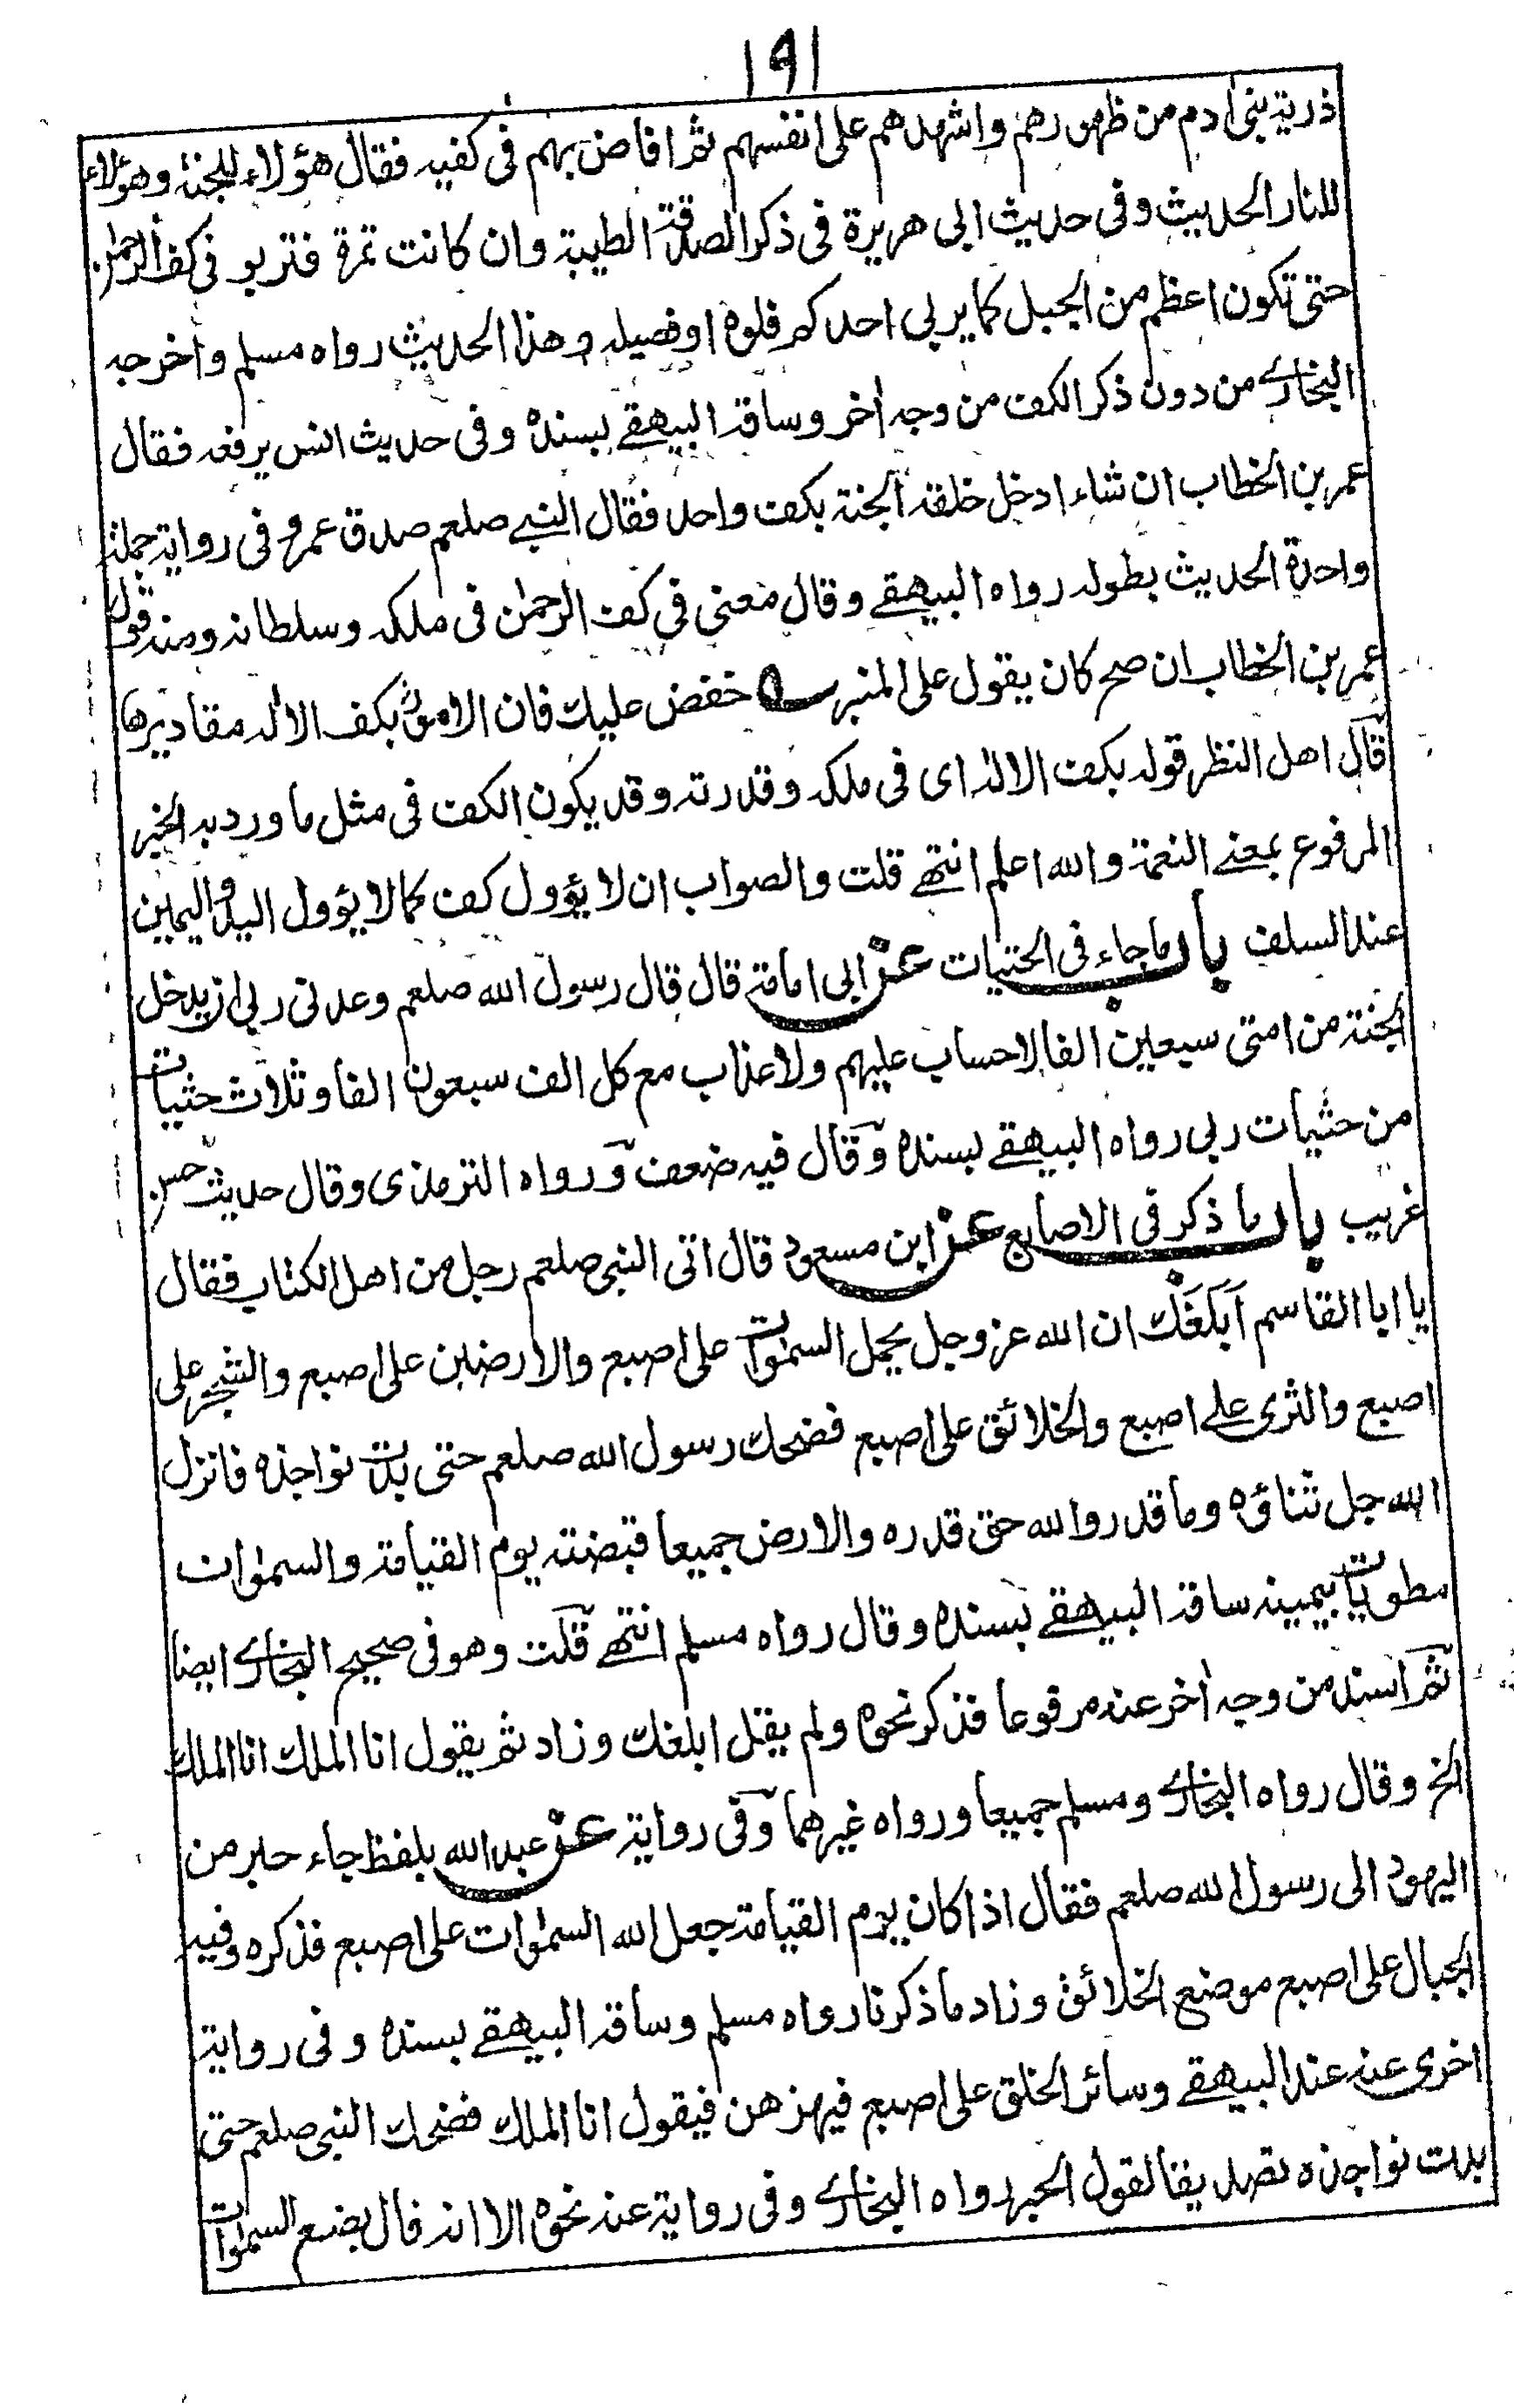 ١٩١
ذرية بنى ادم من ظهورهم واشهدهم على انفسهم ثم افاض بهم فى كفيه فقال هؤلاء للجنة وهؤلاء
للنار الحديث وفى حديث ابى هريرة فى ذكر الصدقة الطيبة وان كانت تمرة فتربو فى كف الرحمن
حتى تكون اعظم من الجبل كما يربى احدكم فلوه او فصيله وهذا الحديث رواه مسلم واخرجه
البخارى من دون ذكر الكف من وجه اخر وساقه البيهقى بسنده وفى حديث انس يرفعه فقال
عمر بن الخطاب ان شاء ادخل خلقه الجنة بكف واحد فقال النبى صلعم صدق عمر وفى رواية جملة
واحدة الحديث بطوله رواه البيهقى وقال معنى فى كف الرحمن فى ملكه وسلطانه ومنه قول
عمر بن الخطاب ان صح كان يقول على المنبر خفض عليك فان الامور بكف الاله مقاديرها
قال اهل النظر قوله بكف الاله اى فى ملكه وقدرته وقد يكون الكف فى مثل ما ورد به الخبر
المرفوع بمعنى النعمة والله اعلم انتهى قلت والصواب ان لا يؤول كف كما لا يؤول اليد واليمين
عند السلف باب ما جاء فى الحثيات عن ابى امامة قال قال رسول الله صلعم وعدنى ربى ان يدخل
الجنة من امتى سبعين الفا لاحساب عليهم ولا عذاب مع كل الف سبعون الفا وثلاث حثيات
من حثيات ربى رواه البيهقى بسنده وقال فيه ضعف ورواه الترمذى وقال حديث حسن
غريب باب ما ذكر فى الاصابع عن ابن مسعود قال اتى النبى صلعم رجل من اهل الكتاب فقال
يا ابا القاسم ابلغك ان الله عز وجل يحمل السموات على اصبع والارضين على اصبع والشجر على
اصبع والثرى على اصبع والخلائق على اصبع فضحك رسول الله صلعم حتى بدت نواجذه فانزل
الله جل ثناؤه وما قدروا الله حق قدره والارض جميعا قبضته يوم القيامة والسموات
مطويات بيمينه ساقه البيهقى بسنده وقال رواه مسلم انتهى قلت وهو فى صحيح البخارى ايضا
ثم اسند من وجه اخر عنه مرفوعا فذكر نحوه ولم يقل ابلغك وزاد ثم يقول انا الملك انا الملك
الخ وقال رواه البخارى ومسلم جميعا ورواه غيرهما وفى رواية عن عبد الله بلفظ جاء حبر من
اليهود الى رسول الله صلعم فقال اذا كان يوم القيامة جعل الله السموات على اصبع فذكره وفيه
الجبال على اصبع موضع الخلائق وزاد ما ذكرنا رواه مسلم وساقه البيهقى بسنده وفى رواية
اخرى عنه عند البيهقى وسائر الخلق على اصبع فيهزهن فيقول انا الملك فضحك النبى صلعم حتى
بدت نواجذه تصديقا لقول الحبر رواه البخارى وفى رواية عنه نحوه الا انه قال يضع السموات